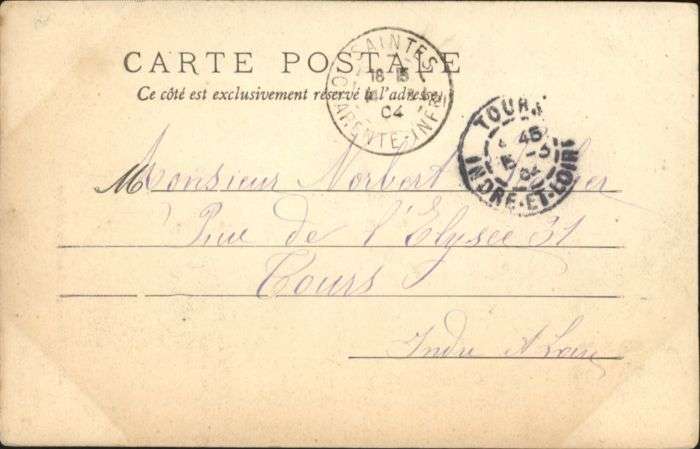 CARTE POSTALE
Ce côté est exclusivement réservé à l'adresse
SAINTES
18 15
04
CHARENTE-INFRE
TOURS
45
04
INDRE-ET-LOIRE
Monsieur Norbert
Rue de l'Elysée 31
Tours
Indre & Loire